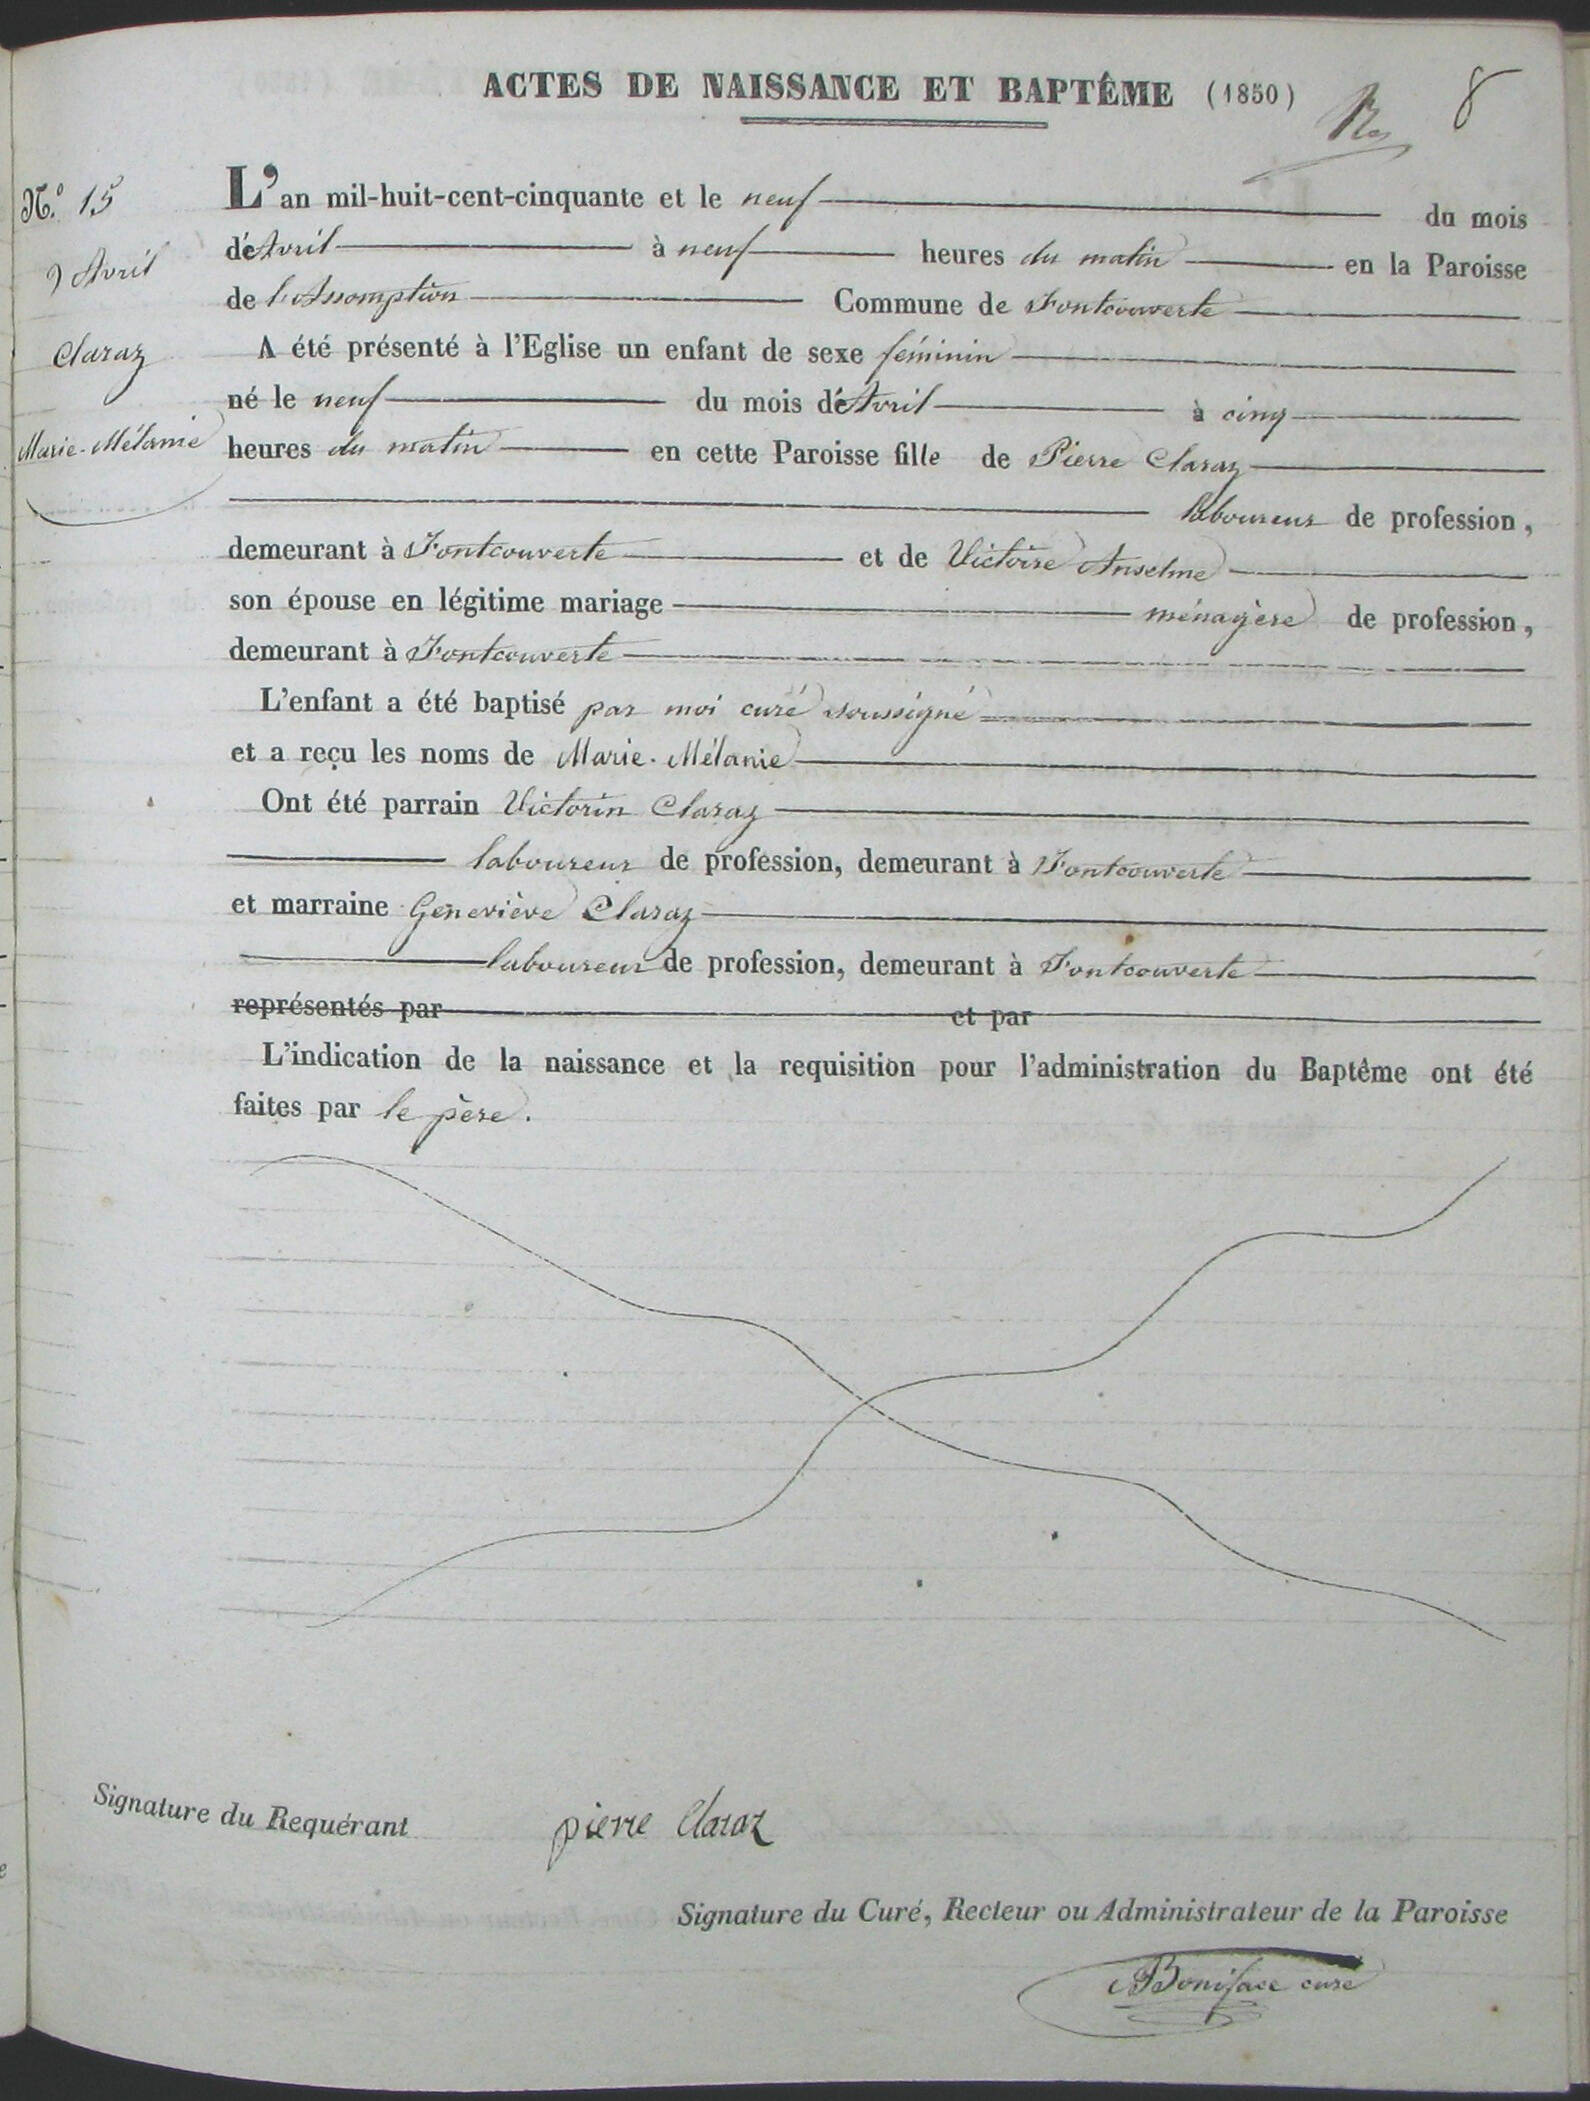 ACTES DE NAISSANCE ET BAPTÊME (1850)
8
N.º 15
9 Avril
Claraz
Marie-Mélanie
L'an mil-huit-cent-cinquante et le neuf du mois
d'Avril à neuf heures du matin en la Paroisse
de l'Assomption Commune de Fontcouverte
A été présenté à l'Eglise un enfant de sexe féminin
né le neuf du mois d'Avril à cinq
heures du matin en cette Paroisse fille de Pierre Claraz
laboureur de profession,
demeurant à Fontcouverte et de Victoire Anselme
son épouse en légitime mariage ménagère de profession,
demeurant à Fontcouverte
L'enfant a été baptisé par moi curé soussigné
et a reçu les noms de Marie-Mélanie
Ont été parrain Victorin Claraz
laboureur de profession, demeurant à Fontcouverte
et marraine Geneviève Claraz
laboureur de profession, demeurant à Fontcouverte
représentés par et par
L'indication de la naissance et la requisition pour l'administration du Baptême ont été
faites par le père.
Signature du Requérant pierre Claraz
Signature du Curé, Recteur ou Administrateur de la Paroisse
Boniface curé